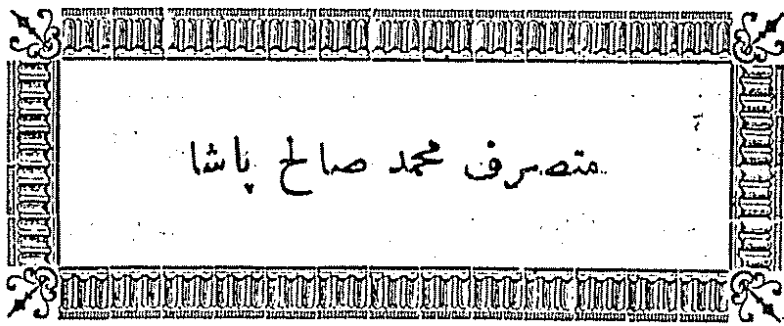 متصرف محمد صالح پاشا